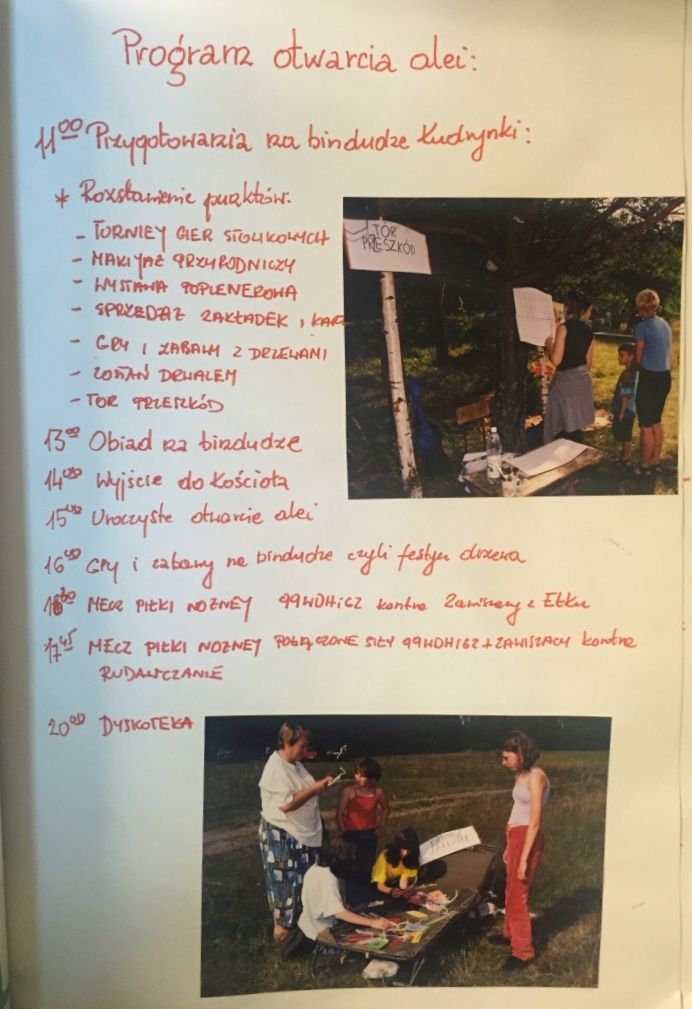 Program otwarcia alei:
11⁰⁰ Przygotowania na bindudze Kudrynki:
* Rozstawienie punktów:
- TURNIEJ GIER STOLIKOWYCH
- MAKIJAŻ PRZYRODNICZY
- WYSTAWA POPLENEROWA
- SPRZEDAŻ ZAKŁADEK, KAR
- GRY I ZABAWY Z DRZEWAMI
- ZOSTAŃ DRWALEM
- TOR PRZESZKÓD
TOR
PRZESZKÓD
13⁰⁰ Obiad na bindudze
14⁰⁰ Wyjście do Kościoła
15⁰⁰ Uroczyste otwarcie alei
16⁰⁰ Gry i zabawy na bindudze czyli festyn drzewa
MECZ PIŁKI NOŻNEJ 99WDHiGZ kontra Zawiszacy z Ełku
17⁴⁵ MECZ PIŁKI NOŻNEJ POŁĄCZONE SIŁY 99WDHiGZ + ZAWISZACY kontra
RUDAWCZANIE
20⁰⁰ DYSKOTEKA